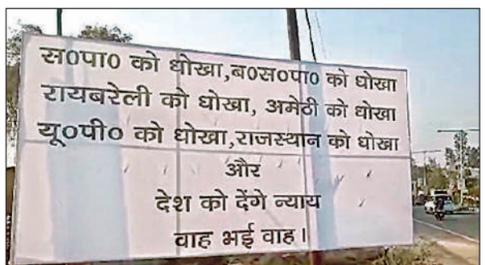 स०पा० को धोखा,ब०स०पा० को धोखा
रायबरेली को धोखा, अमेठी को धोखा
यू०पी० को धोखा,राजस्थान को धोखा
और
देश को देंगे न्याय
वाह भई वाह।